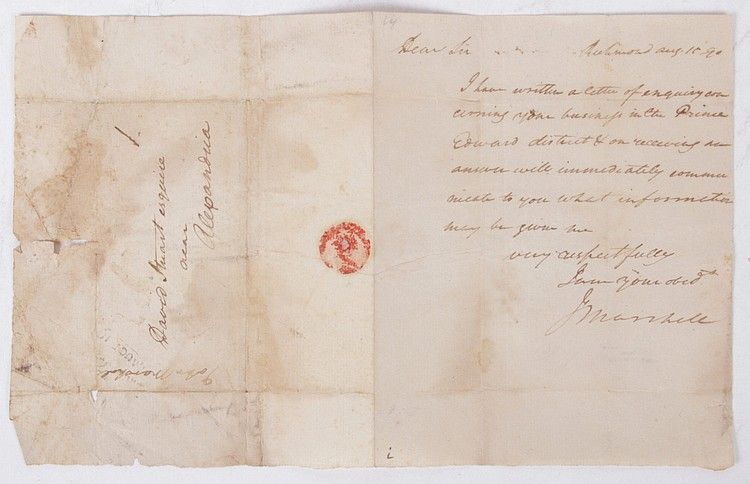 Dear Sir Richmond Aug. 15 90
I have written a letter of enquiry con
cerning your business in the Prince
Edward district & on receiving an
answer will immediately commu
nicate to you what information
may be given me
very respectfully
I am your obedt
J Marshall
David Stuart esquire
near
Alexandria
John Marshal
AUG